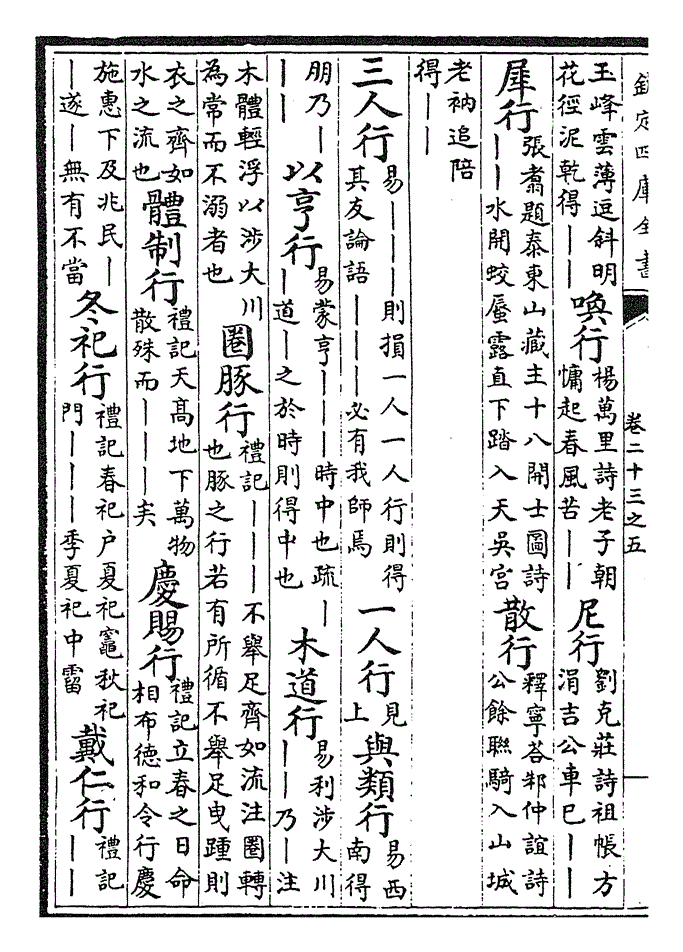 欽定四庫全書
卷二十三之五
一
玉峰雲薄逗斜明
花徑泥乾得｜｜
喚行
楊萬里詩老子朝
慵起春風苦｜｜
尼行
劉克莊詩祖帳方
涓吉公車已｜｜
犀行
張翥題泰東山藏主十八開士圖詩
｜｜水開蛟蜃露直下踏入天吳宮
散行
釋寧荅邾仲誼詩
公餘聯騎入山城
老衲追陪
得｜｜
三人行
易｜｜｜則損一人一人行則得
其友論語｜｜｜必有我師焉
一人行
見
上
與類行
易西
南得
朋乃｜
｜｜
以亨行
易蒙亨｜｜｜時中也疏｜
｜道｜之於時則得中也
木道行
易利涉大川
｜｜乃｜注
木體輕浮以涉大川
為常而不溺者也
圈豚行
禮記｜｜｜不舉足齊如流注圈轉
也豚之行若有所循不舉足曳踵則
衣之齊如
水之流也
體制行
禮記天高地下萬物
散殊而｜｜｜矣
慶賜行
禮記立春之日命
相布德和令行慶
施惠下及兆民｜
｜遂｜無有不當
冬祀行
禮記春祀户夏祀竈秋祀
門｜｜｜季夏祀中霤
戴仁行
禮記
｜｜